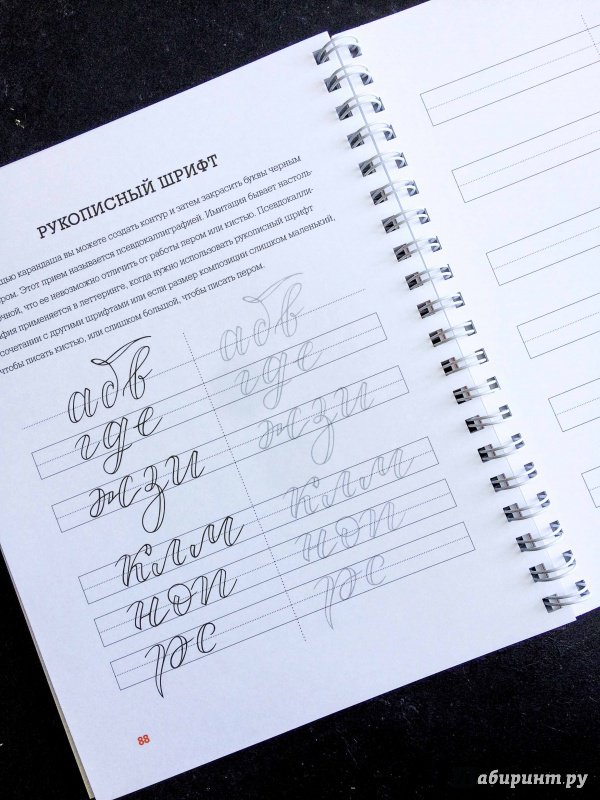 РУКОПИСНЫЙ ШРИФТ
карандаша вы можете создать контур и затем закрасить буквы черным
Этот прием называется псевдокаллиграфией. Имитация бывает настоль-
что ее невозможно отличить от работы пером или кистью. Псевдокалли-
применяется в леттеринге, когда нужно использовать рукописный шрифт
сочетании с другими шрифтами или если размер композиции слишком маленький,
чтобы писать кистью, или слишком большой, чтобы писать пером.
а б в а б в
г д е г д е
ж з и ж з и
к л м к л м
н о п н о п
р с р с
88
абиринт.ру